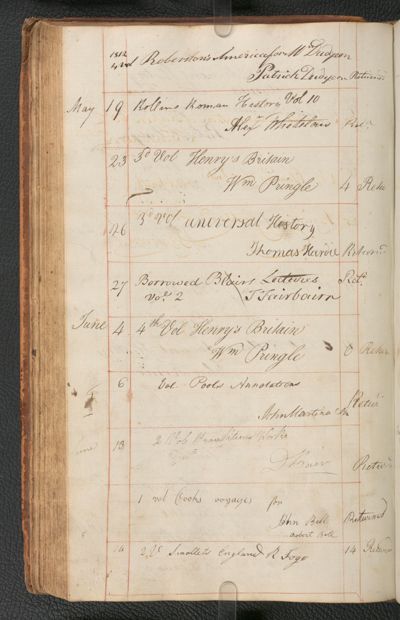 1812
4 vol Robertson's America for W Dudgeon
Patrick Dudgeon Returnd
May 19 Rollins Roman History Vol 10
Alexr Whitelaw Retd
23 3d Vol Henry's Britain
Wm Pringle 4 Retu
26 3d vol universal History
Thomas Hardie Returnd
27 Borrowed Blairs Lectures Retd
Vol 2 J Fairbairn
June 4 4th Vol Henry's Britain
Wm Pringle 0 Retur
6 Vol Pools Annotations
John Martin Retur
13 2 Vol Works
Retur
1 vol Cooks voyages for
John Bell Returned
Robert Bell
14 2 Vol Smolletts England R Fogo 14 Return